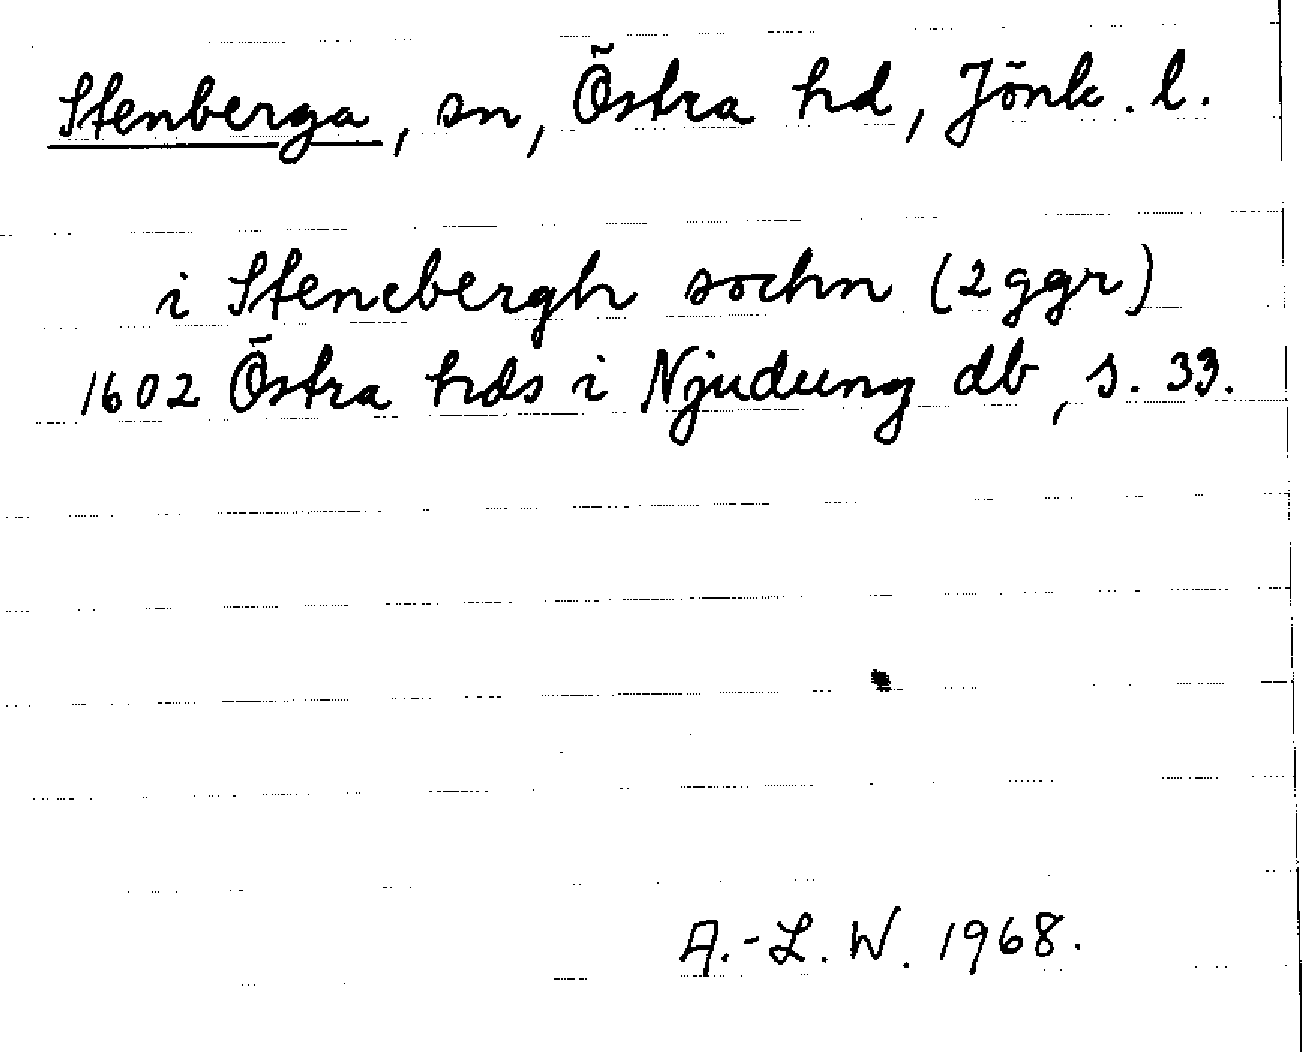 Stenberga, sn, Östra hd, Jönk. l.
i Stenebergh sochn (2 ggr)
1602 Östra hds i Njudung db, s. 33.
A.-L. W. 1968.